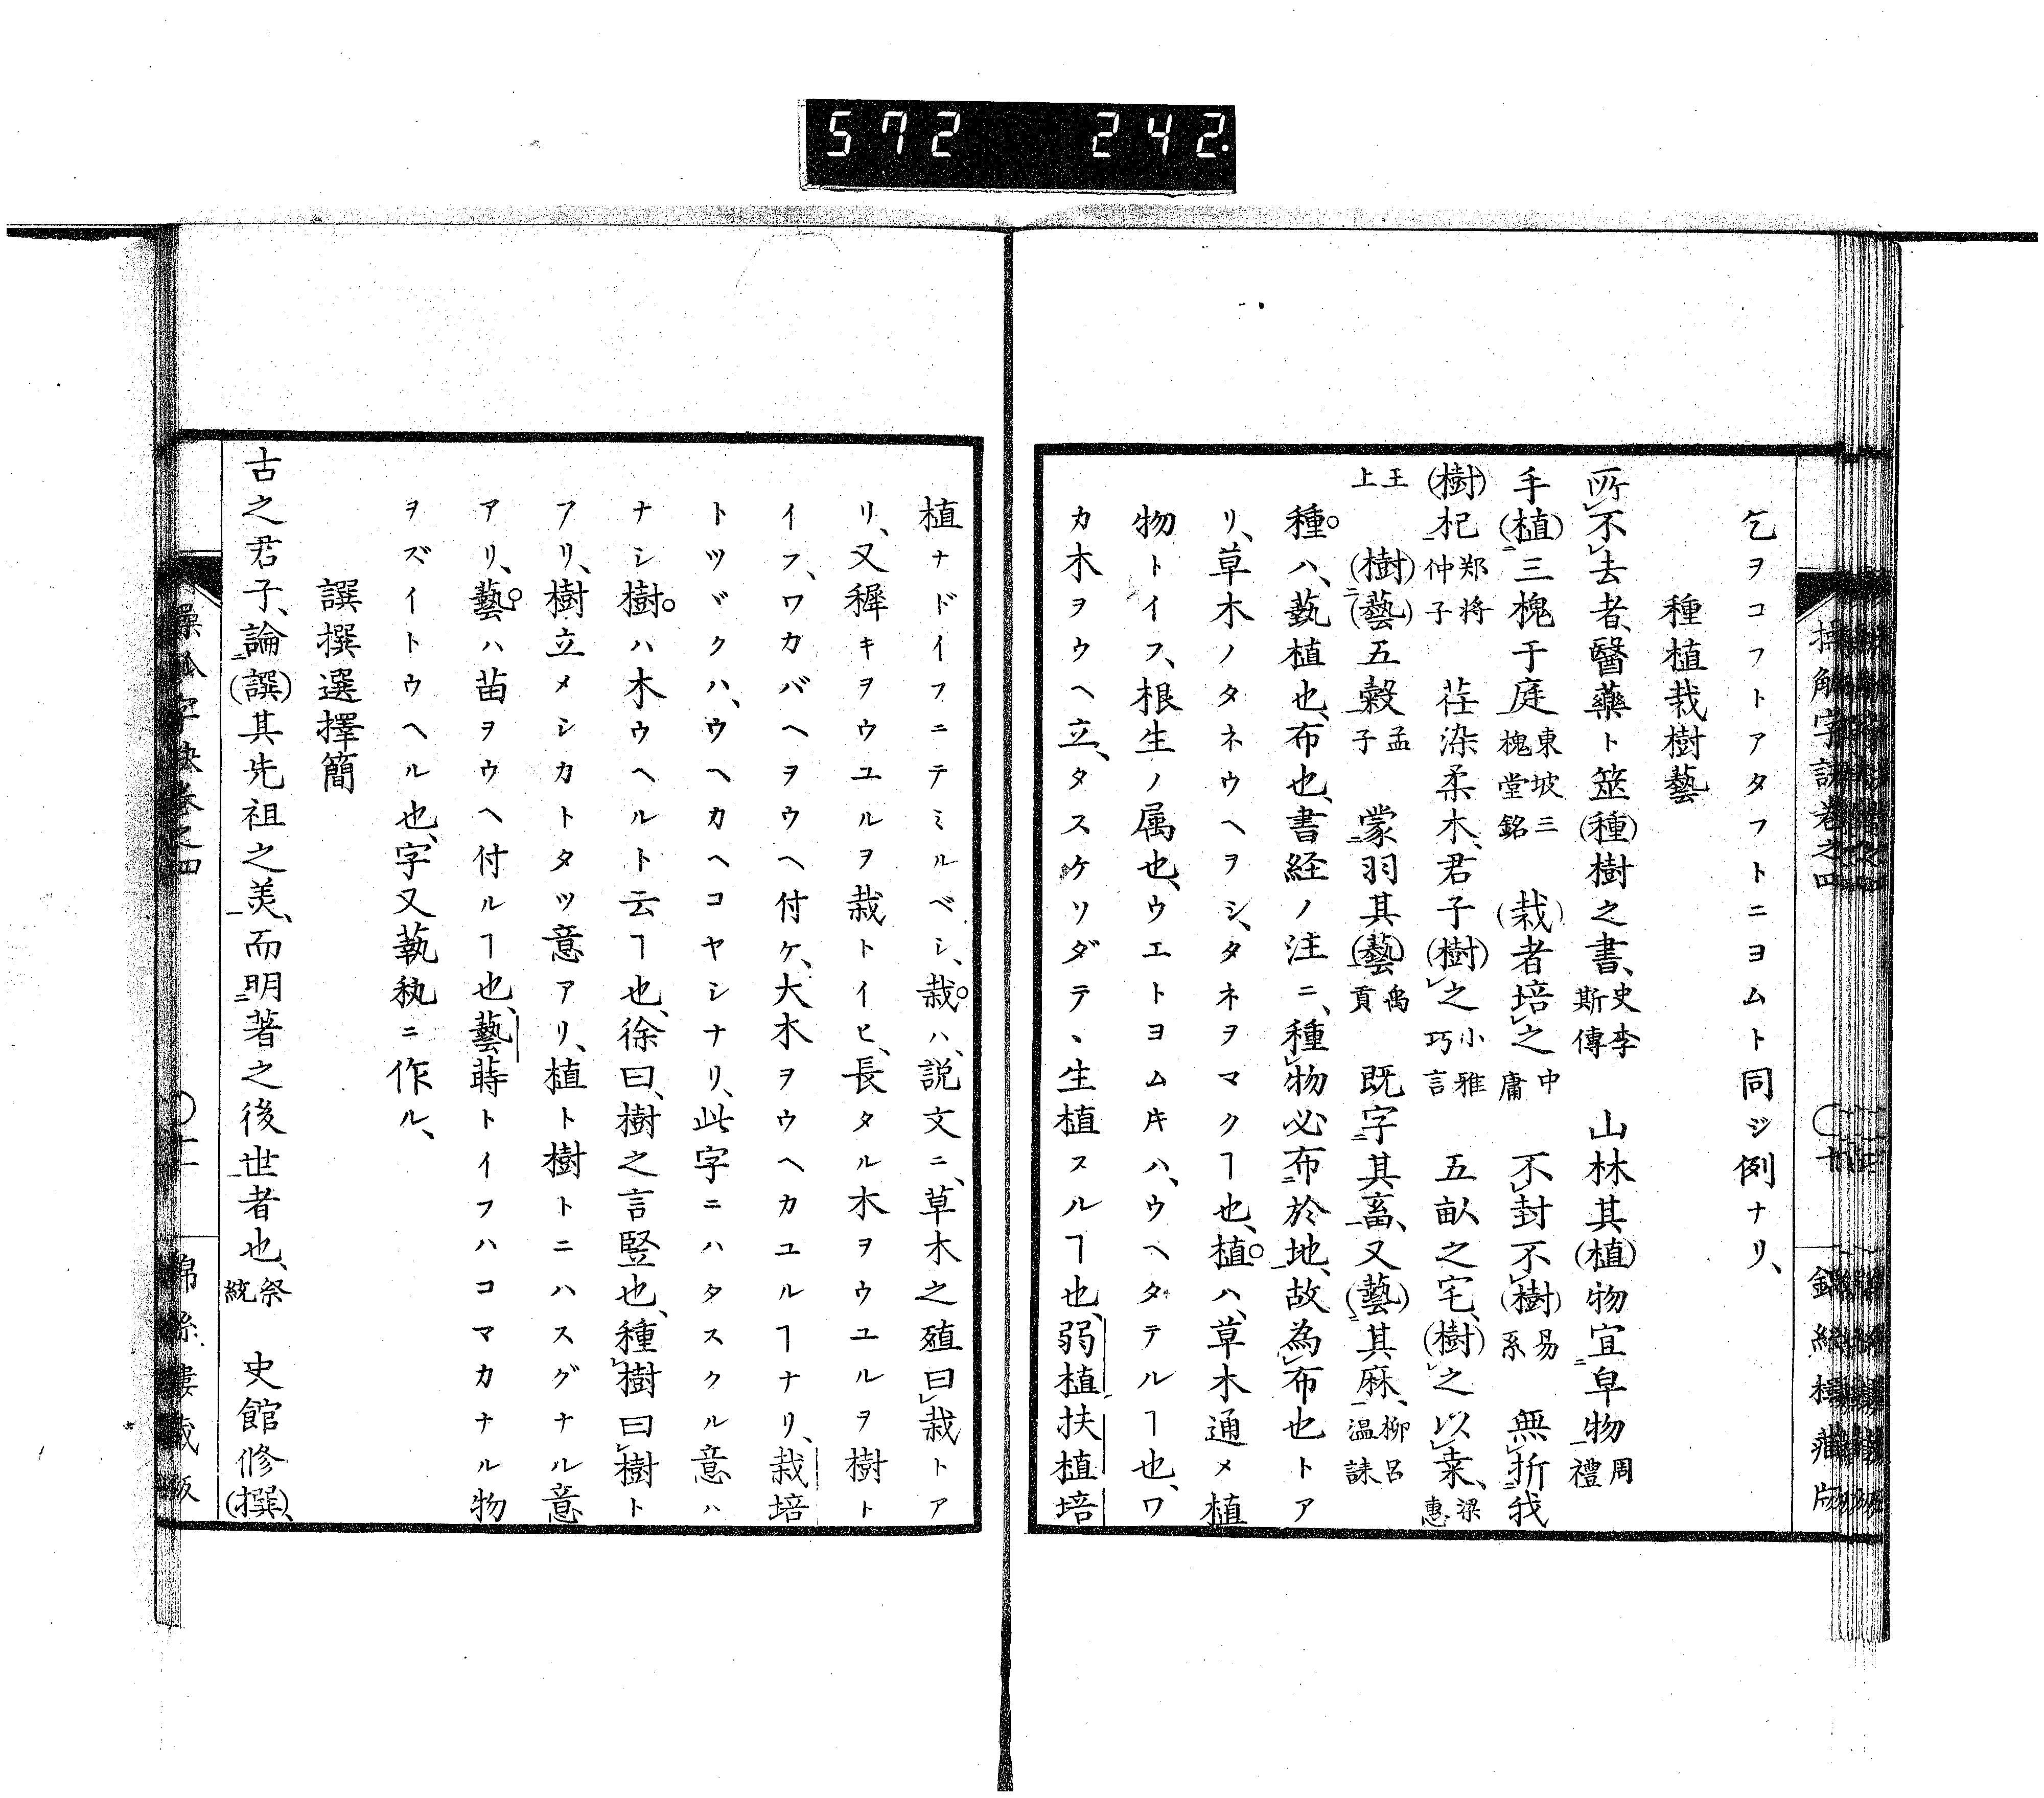 572 242
乞ヲコフトアタフトニヨムト同ジ例ナリ、
種植栽樹藝
所不去者、醫藥ト筮(種)樹之書、史李斯傳 山林其(植)物宜皁物周禮
手(植)三槐于庭東坡三槐堂銘 (栽)者培之中庸 不封不(樹)易系 無折我
(樹)杞郑将仲子 荏染柔木、君子(樹)之小雅巧言 五畝之宅、(樹)之以桒、梁惠
王上 (樹)(藝)五穀孟子 蒙羽其(藝)禹貢 既字其畜、又(藝)其麻、柳呂温誄
種ハ、蓺植也、布也、書経ノ注ニ、種物必布於地、故為布也トア
リ、草木ノタネウヘヲシ、タネヲマクヿ也、植ハ、草木通メ植
物トイフ、根生ノ属也、ウエトヨムキハ、ウヘタテルヿ也、ワ
カ木ヲウヘ立、タスケソダテ、生植スルヿ也、弱植扶植培
操觚字訣巻之四 〇十 錦絲樓藏版
植ナドイフニテミルベシ、栽ハ、説文ニ、草木之殖曰栽トア
リ、又穉キヲウユルヲ栽トイヒ、長タル木ヲウユルヲ樹ト
イフ、ワカバヘヲウヘ付ケ、大木ヲウヘカユルヿナリ、栽培
トツヾクハ、ウヘカヘコヤシナリ、此字ニハタスクル意ハ
ナシ樹ハ木ウヘルト云ヿ也、徐曰、樹之言竪也、種樹曰樹ト
アリ、樹立メシカトタツ意アリ、植ト樹トニハスグナル意
アリ、藝ハ苗ヲウヘ付ルヿ也、藝蒔トイフハコマカナル物
ヲズイトウヘル也、字又蓺秇ニ作ル、
譔撰選擇簡
古之君子、論(譔)其先祖之美、而明著之後世者也、祭統 史館修(撰)、
操觚字訣巻之四 〇十一 錦絲樓藏版